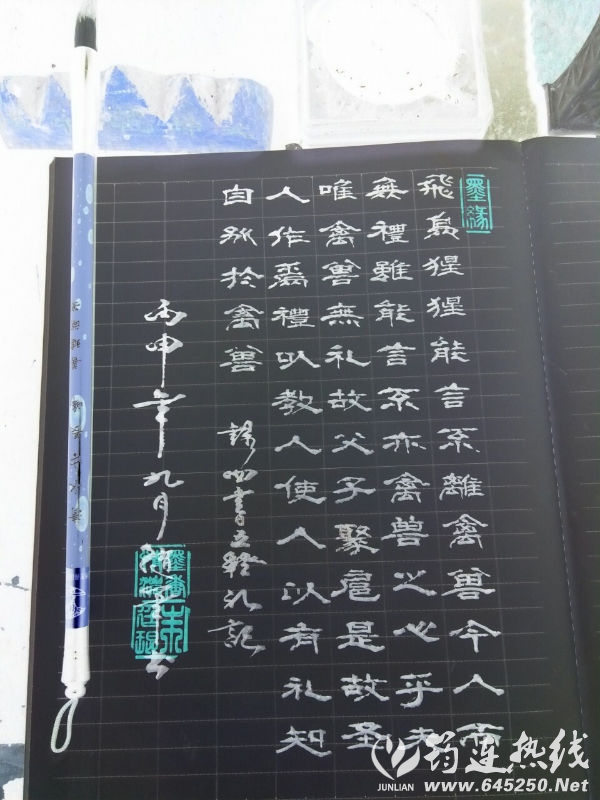 墨緣
飛鳥猩猩能言不離禽獸今人而
無禮雖能言不亦禽獸之心乎夫
唯禽獸無礼故父子聚麀是故圣
人作爲禮以教人使人以有礼知
自别於禽獸
錄四書五經礼記
丙申年九月
筠连热线
JUNLIAN
www.645250.Net